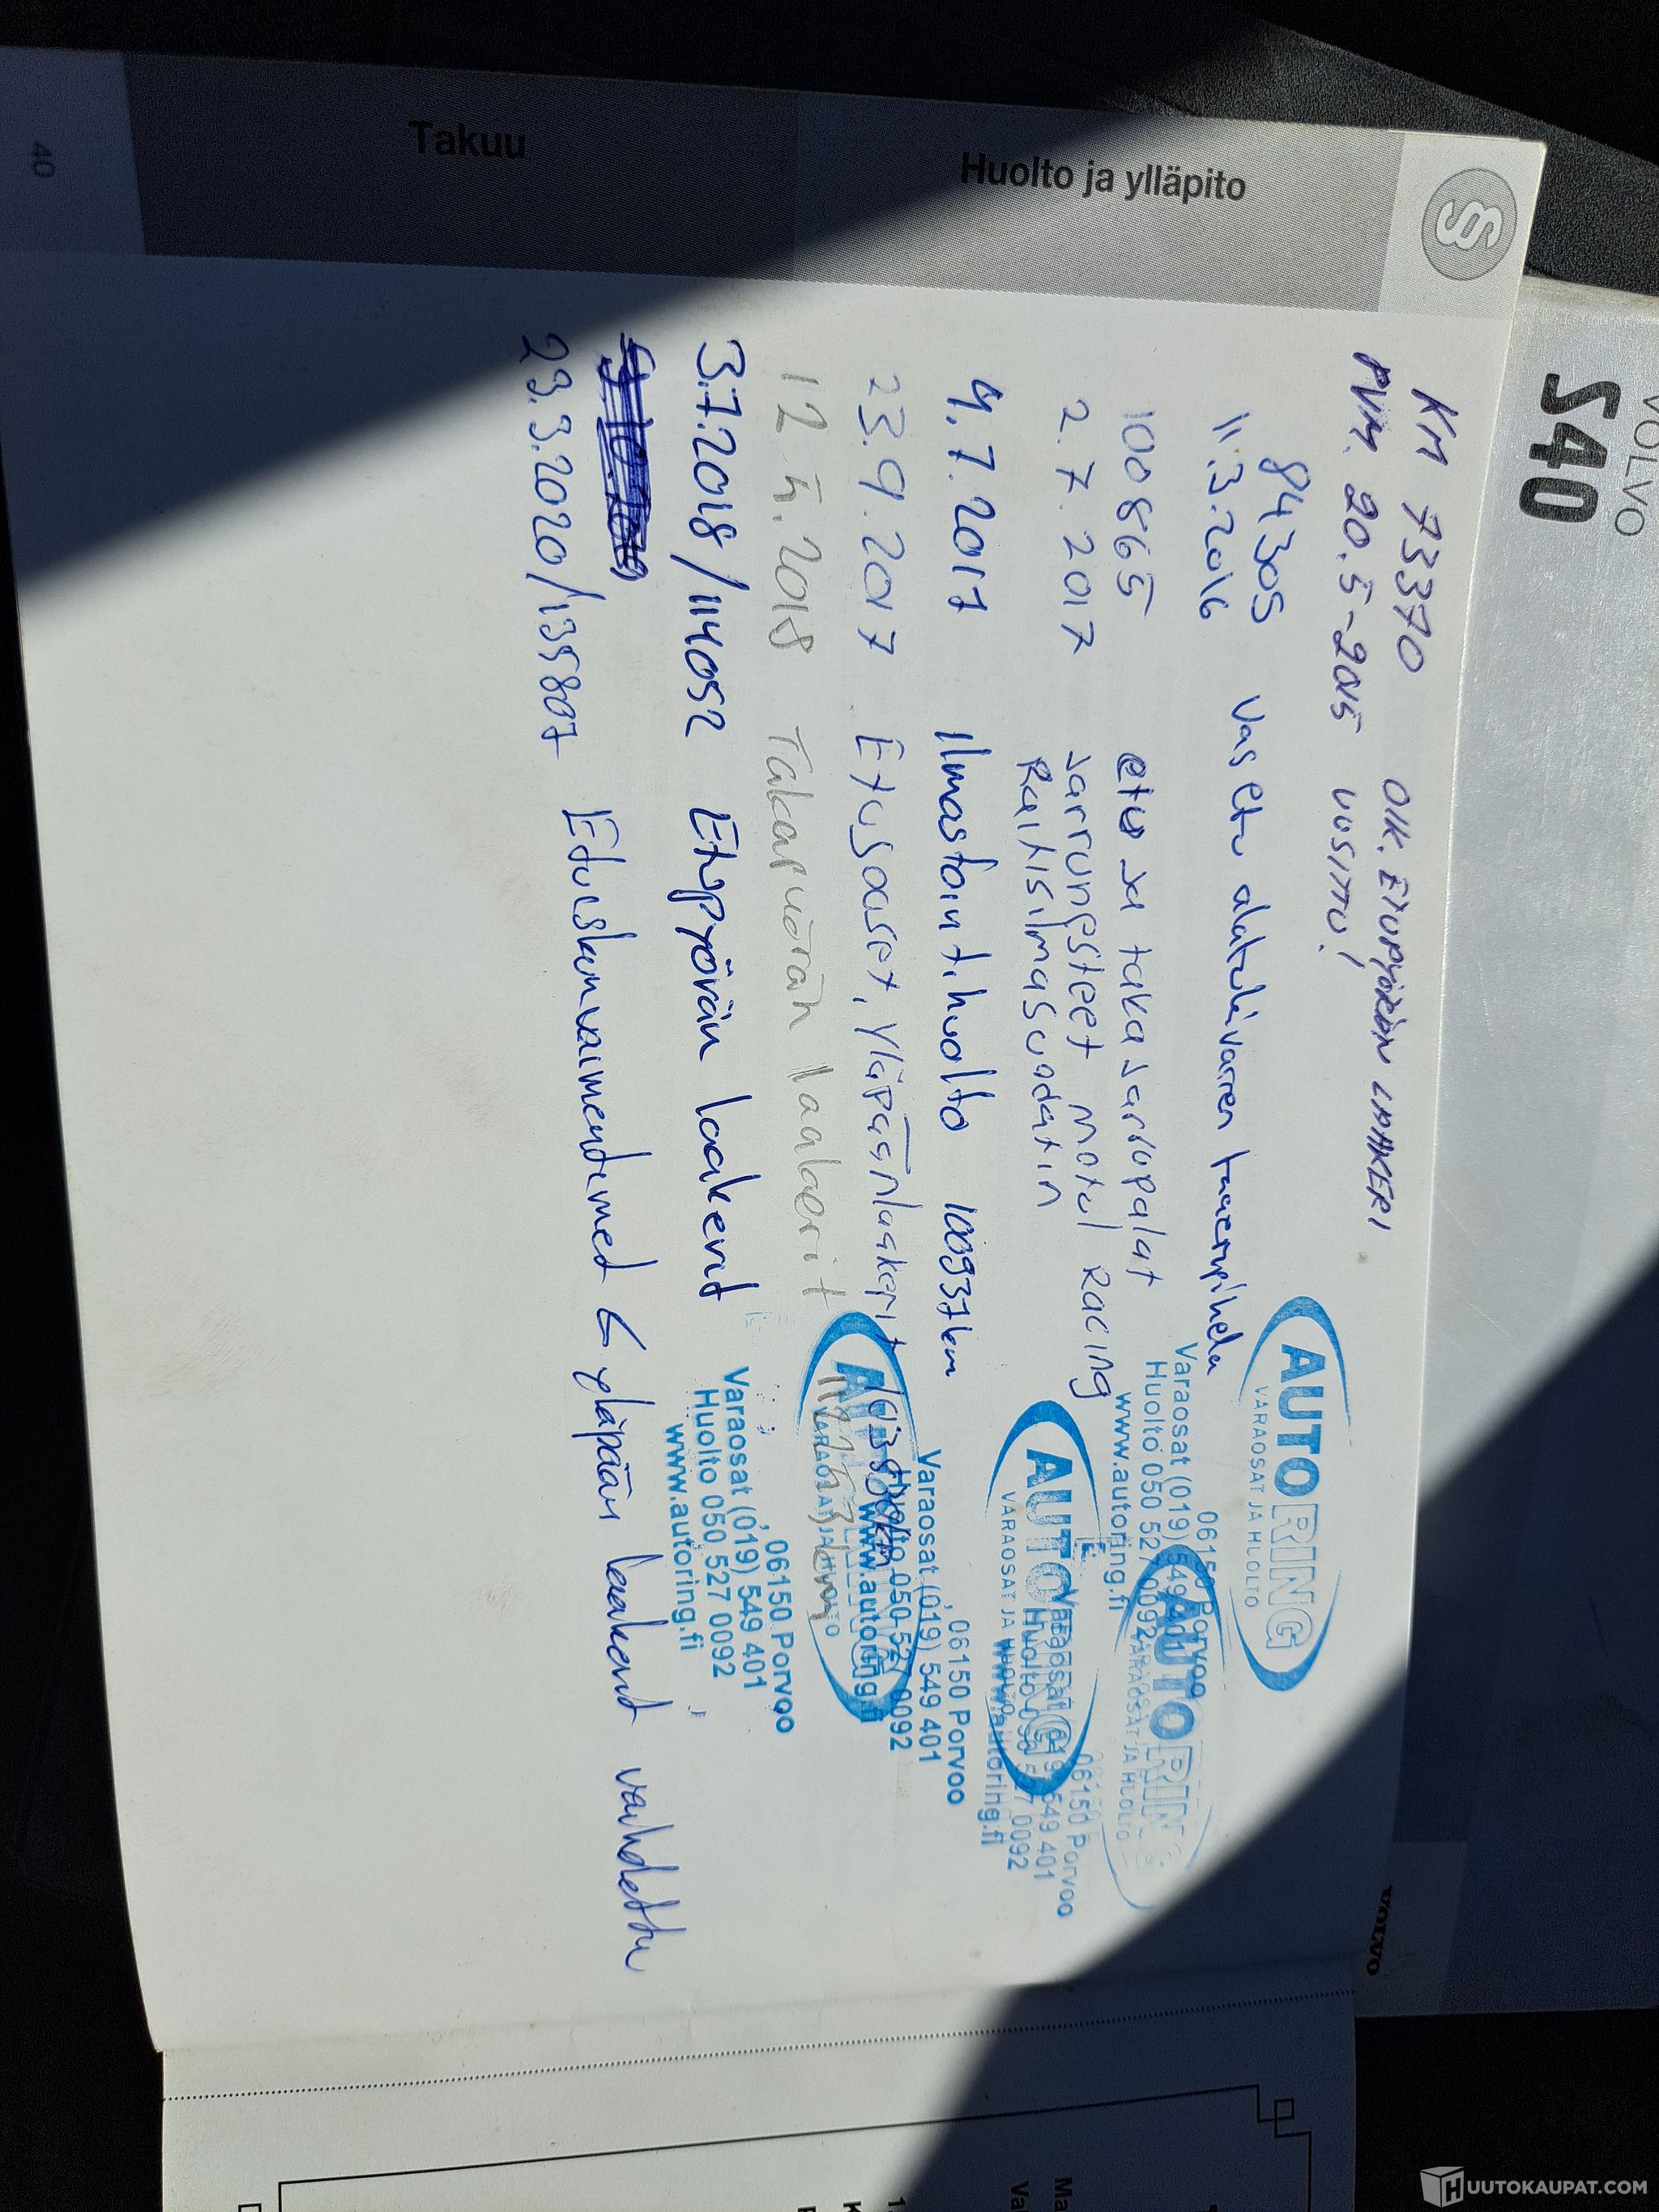 VOLVO
S40
Takuu
Huolto ja ylläpito
§
40
KM 73370 OIK. ETUPYÖRÄN LAAKERI
PVM. 20.5-2015 UUSITTU!
84305
11.3.2016 Vas etu alatukivarren
100865 etu ja taka jarrupalat
2.7.2017 Jarrunesteet Motul Racing
Raitisilmasuodatin
4.7.2017 Ilmastointihuolto 100937km
23.9.2017 Etujouset, Yläpäänlaakerit
12.5.2018 Takapyörän laakerit
3.7.2018/114052 Etupyörän laakerit
23.3.2020/135807 Etuiskunvaimentimet
yläpään laakerit vaihdettu
AUTORING
VARAOSAT JA HUOLTO
06150 Porvoo
Varaosat (019) 549 401
Huolto 050 527 0092
www.autoring.fi
AUTORING
VARAOSAT JA HUOLTO
06150 Porvoo
Varaosat (019) 549 401
Huolto 050 527 0092
www.autoring.fi
AUTORING
VARAOSAT JA HUOLTO
06150 Porvoo
Varaosat (019) 549 401
Huolto 050 527 0092
www.autoring.fi
06150 Porvoo
Varaosat (019) 549 401
Huolto 050 527 0092
www.autoring.fi
VOLVO
HUUTOKAUPAT.COM